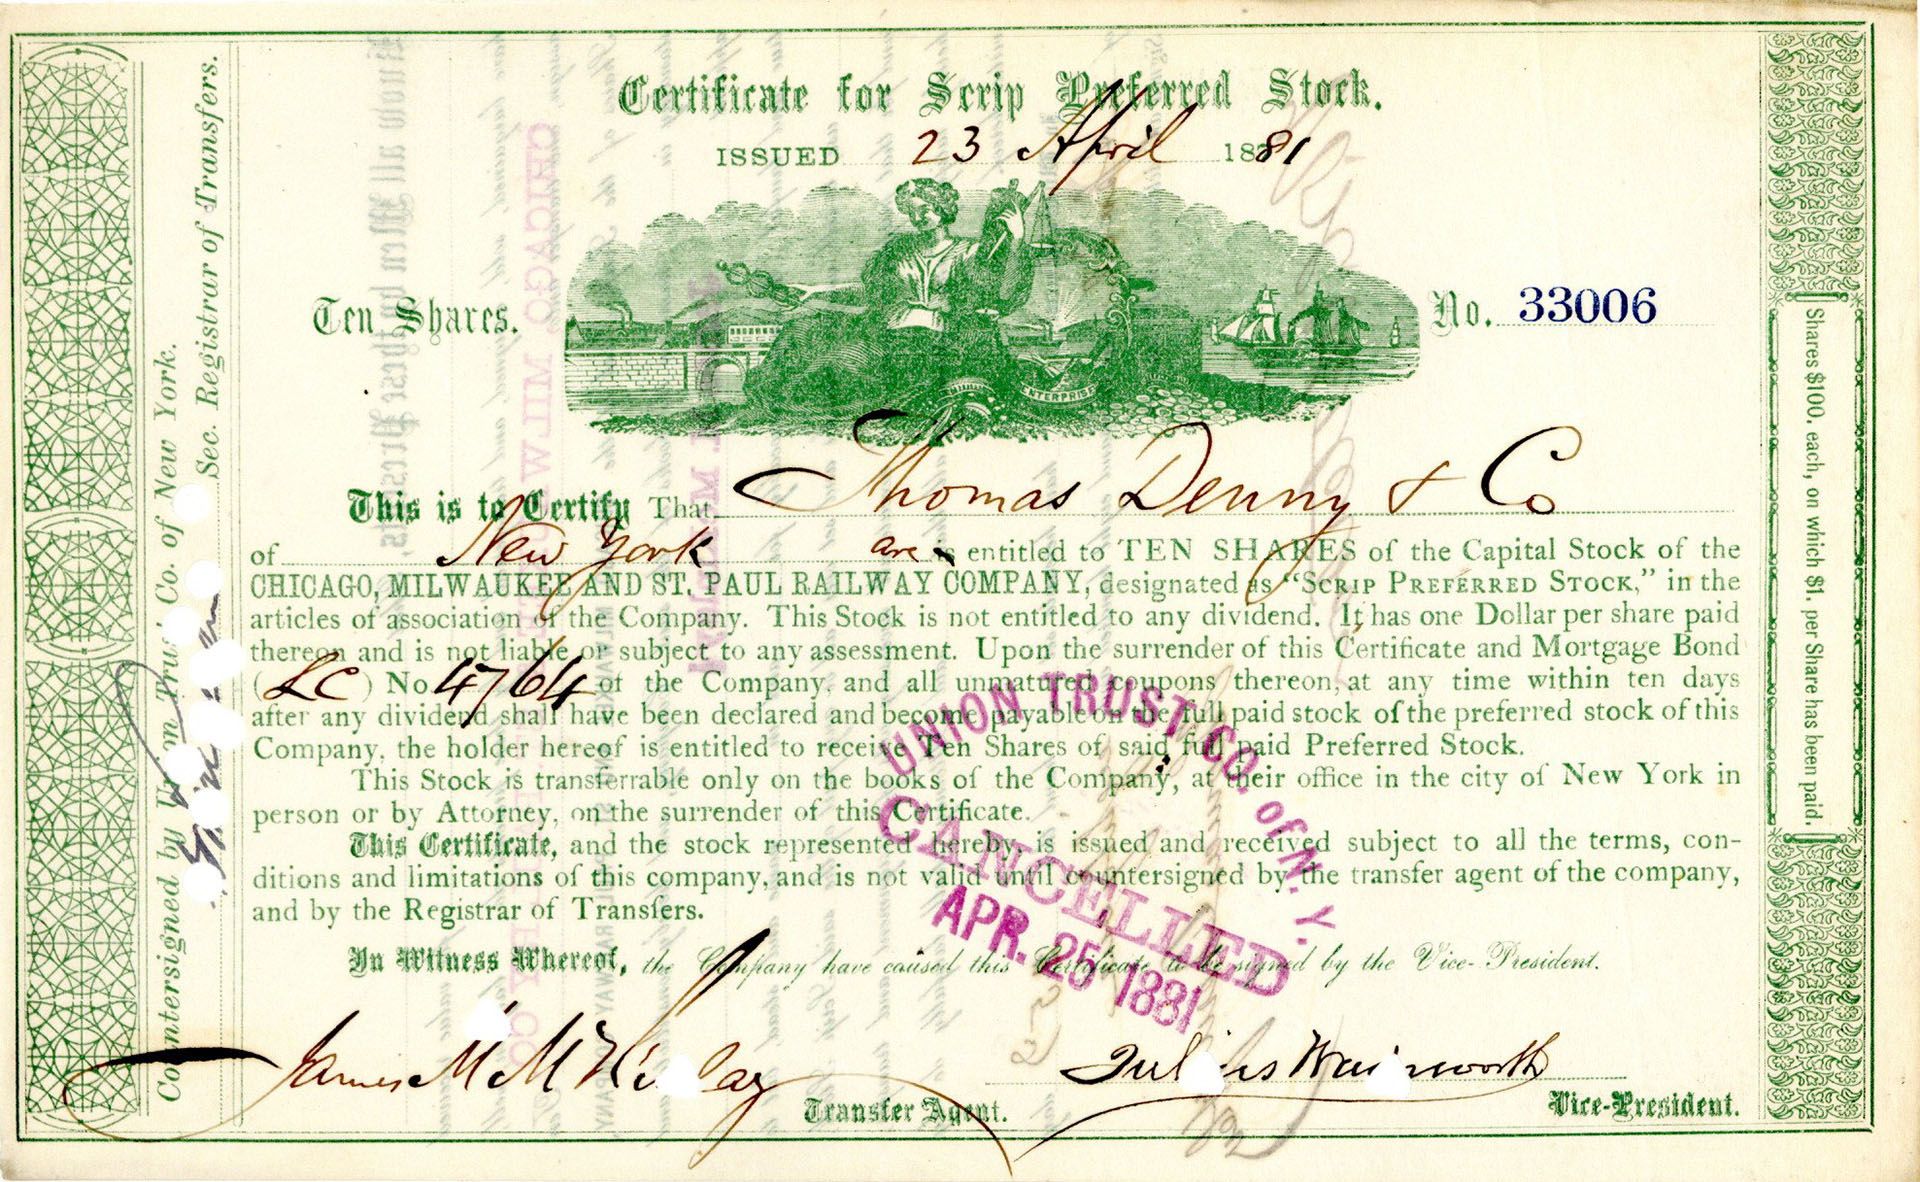 Certificate for Scrip Preferred Stock.
ISSUED 23 April 1881
Ten Shares.
No. 33006
ENTERPRISE
This is to Certify That Thomas Denny & Co
of New York are is entitled to TEN SHARES of the Capital Stock of the
CHICAGO, MILWAUKEE AND ST. PAUL RAILWAY COMPANY, designated as "SCRIP PREFERRED STOCK," in the
articles of association of the Company. This Stock is not entitled to any dividend. It has one Dollar per share paid
thereon and is not liable or subject to any assessment. Upon the surrender of this Certificate and Mortgage Bond
(LC) No. 4764 of the Company, and all unmatured coupons thereon, at any time within ten days
after any dividend shall have been declared and become payable on the full paid stock of the preferred stock of this
Company, the holder hereof is entitled to receive Ten Shares of said full paid Preferred Stock.
This Stock is transferrable only on the books of the Company, at their office in the city of New York in
person or by Attorney, on the surrender of this Certificate.
This Certificate, and the stock represented hereby, is issued and received subject to all the terms, con-
ditions and limitations of this company, and is not valid until countersigned by the transfer agent of the company,
and by the Registrar of Transfers.
In Witness Whereof, the Company have caused this Certificate to be signed by the Vice-President.
James M McKinlay
Transfer Agent.
Julius Wadsworth
Vice-President.
UNION TRUST CO. of N. Y.
CANCELLED
APR. 25 1881
Countersigned by Union Trust Co. of New York.
Sec. Registrar of Transfers.
Shares $100. each, on which $1. per Share has been paid.